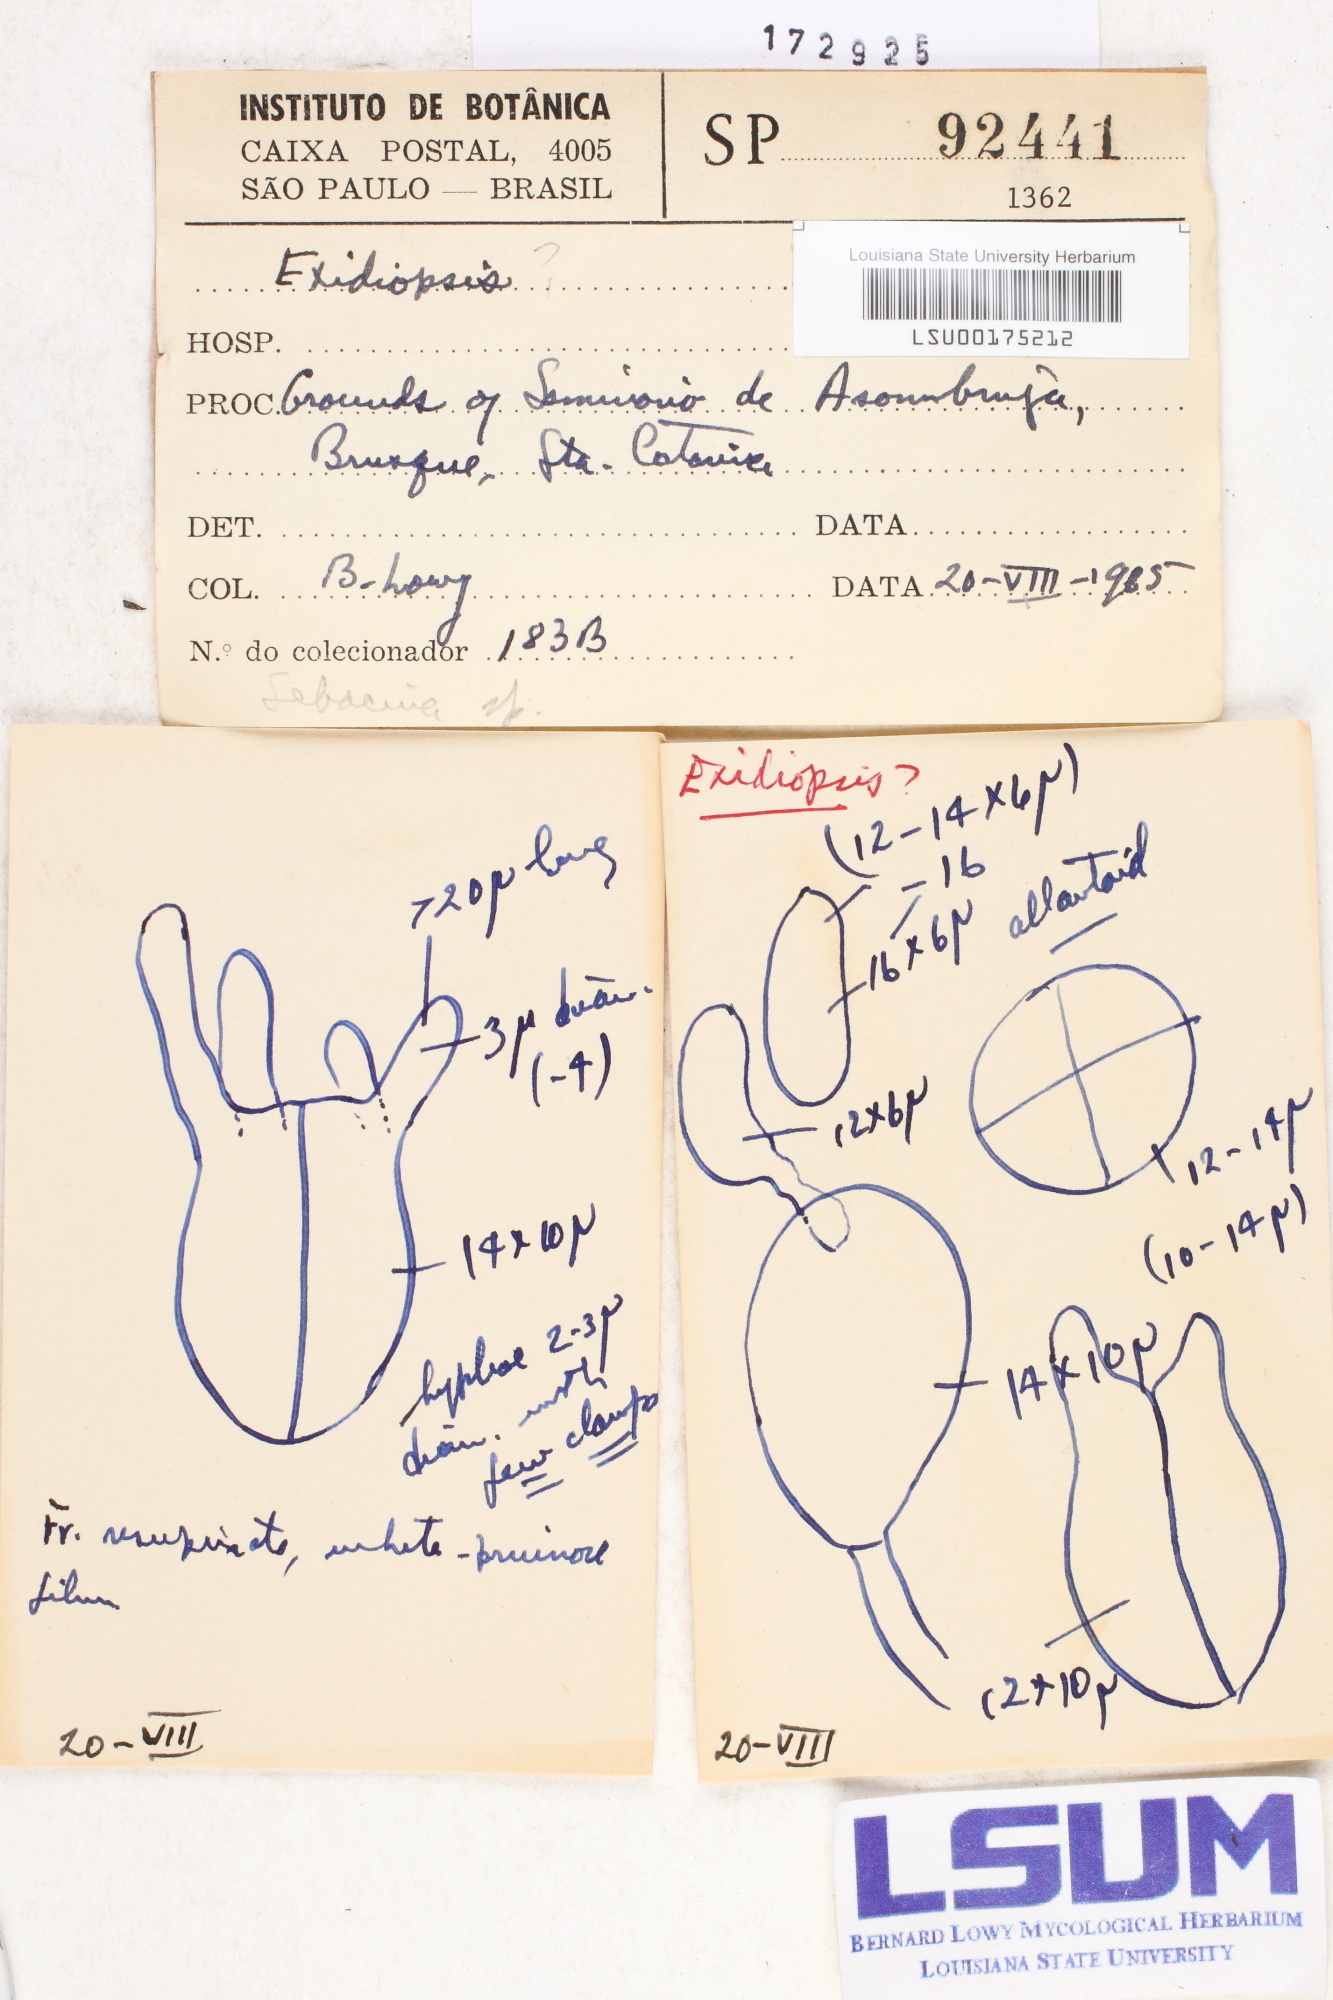 172925
INSTITUTO DE BOTÂNICA
CAIXA POSTAL, 4005
SÃO PAULO — BRASIL
SP 92441
1362
Louisiana State University Herbarium
LSU00175212
Exidiopsis ?
HOSP.
PROC. Grounds of Seminario de
Brusque, Sta. Catarina
DET. DATA
COL. B. Lowy DATA 20-VIII-1965
N.º do colecionador 183B
Sebacina sp.
720μ long
3μ diam.
(-4)
14x10μ
hyphae 2-3μ
diam. with
few clamps
Fr. resupinate, white-pruinose
film
20-VIII
Exidiopsis?
(12-14x6μ)
-16
16x6μ allantoid
12x6μ
12-14μ
(10-14μ)
14x10μ
12x10μ
20-VIII
LSUM
BERNARD LOWY MYCOLOGICAL HERBARIUM
LOUISIANA STATE UNIVERSITY